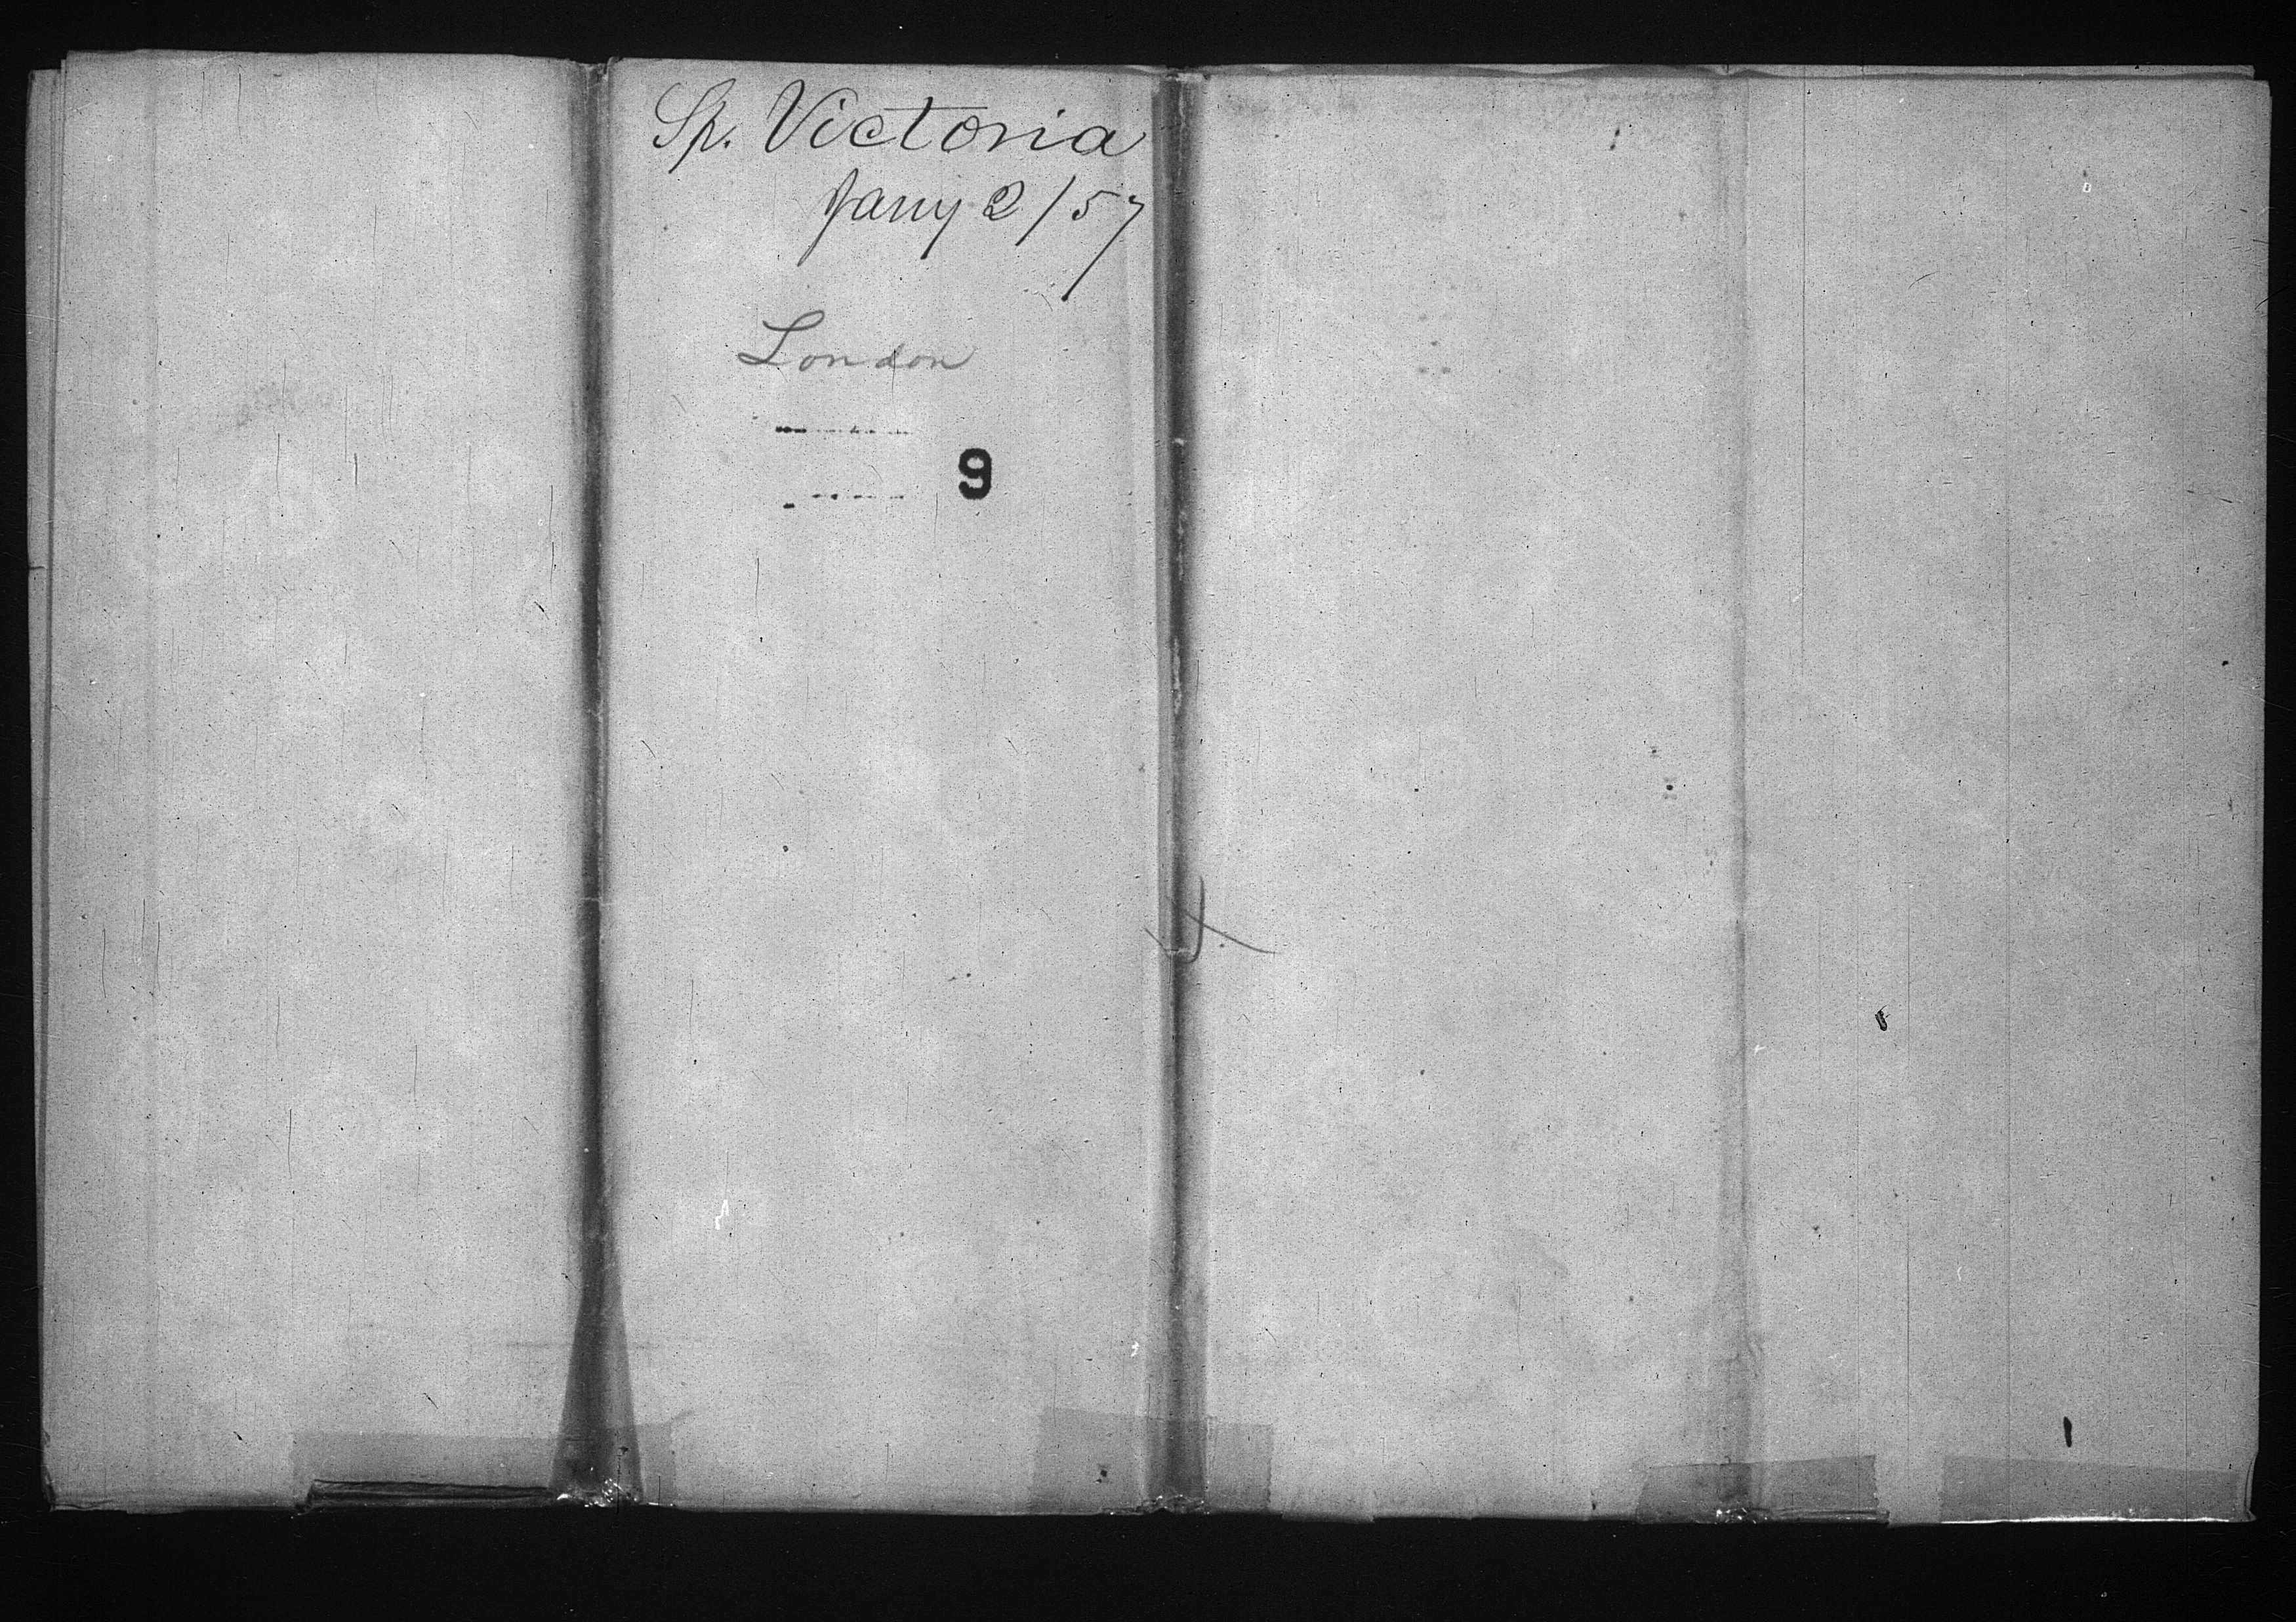 Sh. Victoria
Jany 2/57
London
9